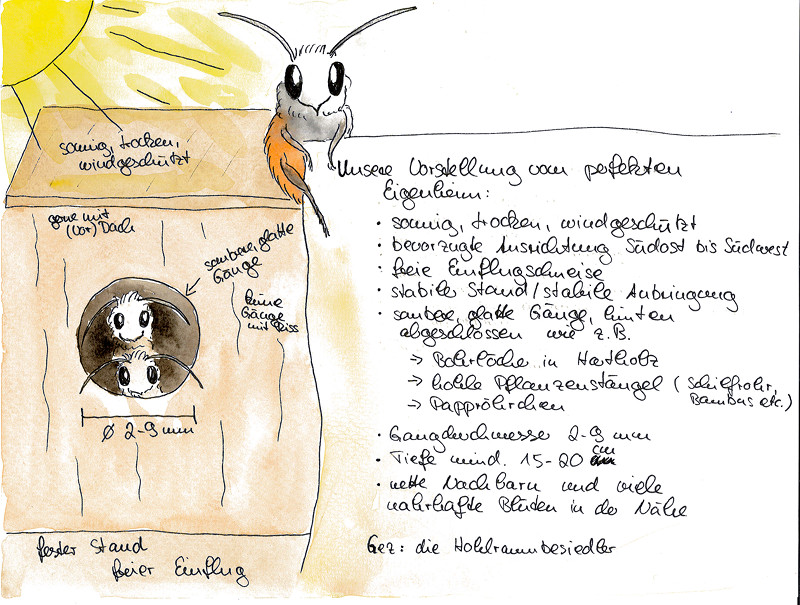 sonnig, trocken,
windgeschützt
gerne mit
(Vor) Dach
saubere, glatte
Gänge
keine
Gänge
mit Riss
Ø 2-9 mm
fester Stand
freier Einflug
Unsere Vorstellung vom perfekten
Eigenheim:
· sonnig, trocken, windgeschützt
· bevorzugte Ausrichtung Südost bis Südwest
· freie Einflugschneise
· stabiler Stand/stabile Anbringung
· saubere, glatte Gänge, hinten
abgeschlossen wie z.B.
→ Bohrlöcher in Hartholz
→ hohle Pflanzenstängel (Schilfrohr,
Bambus etc.)
→ Pappröhrchen
· Gangdurchmesser 2-9 mm
· Tiefe mind. 15-20 cm
· nette Nachbarn und viele
nahrhafte Blüten in der Nähe
Gez: die Hohlraumbesiedler